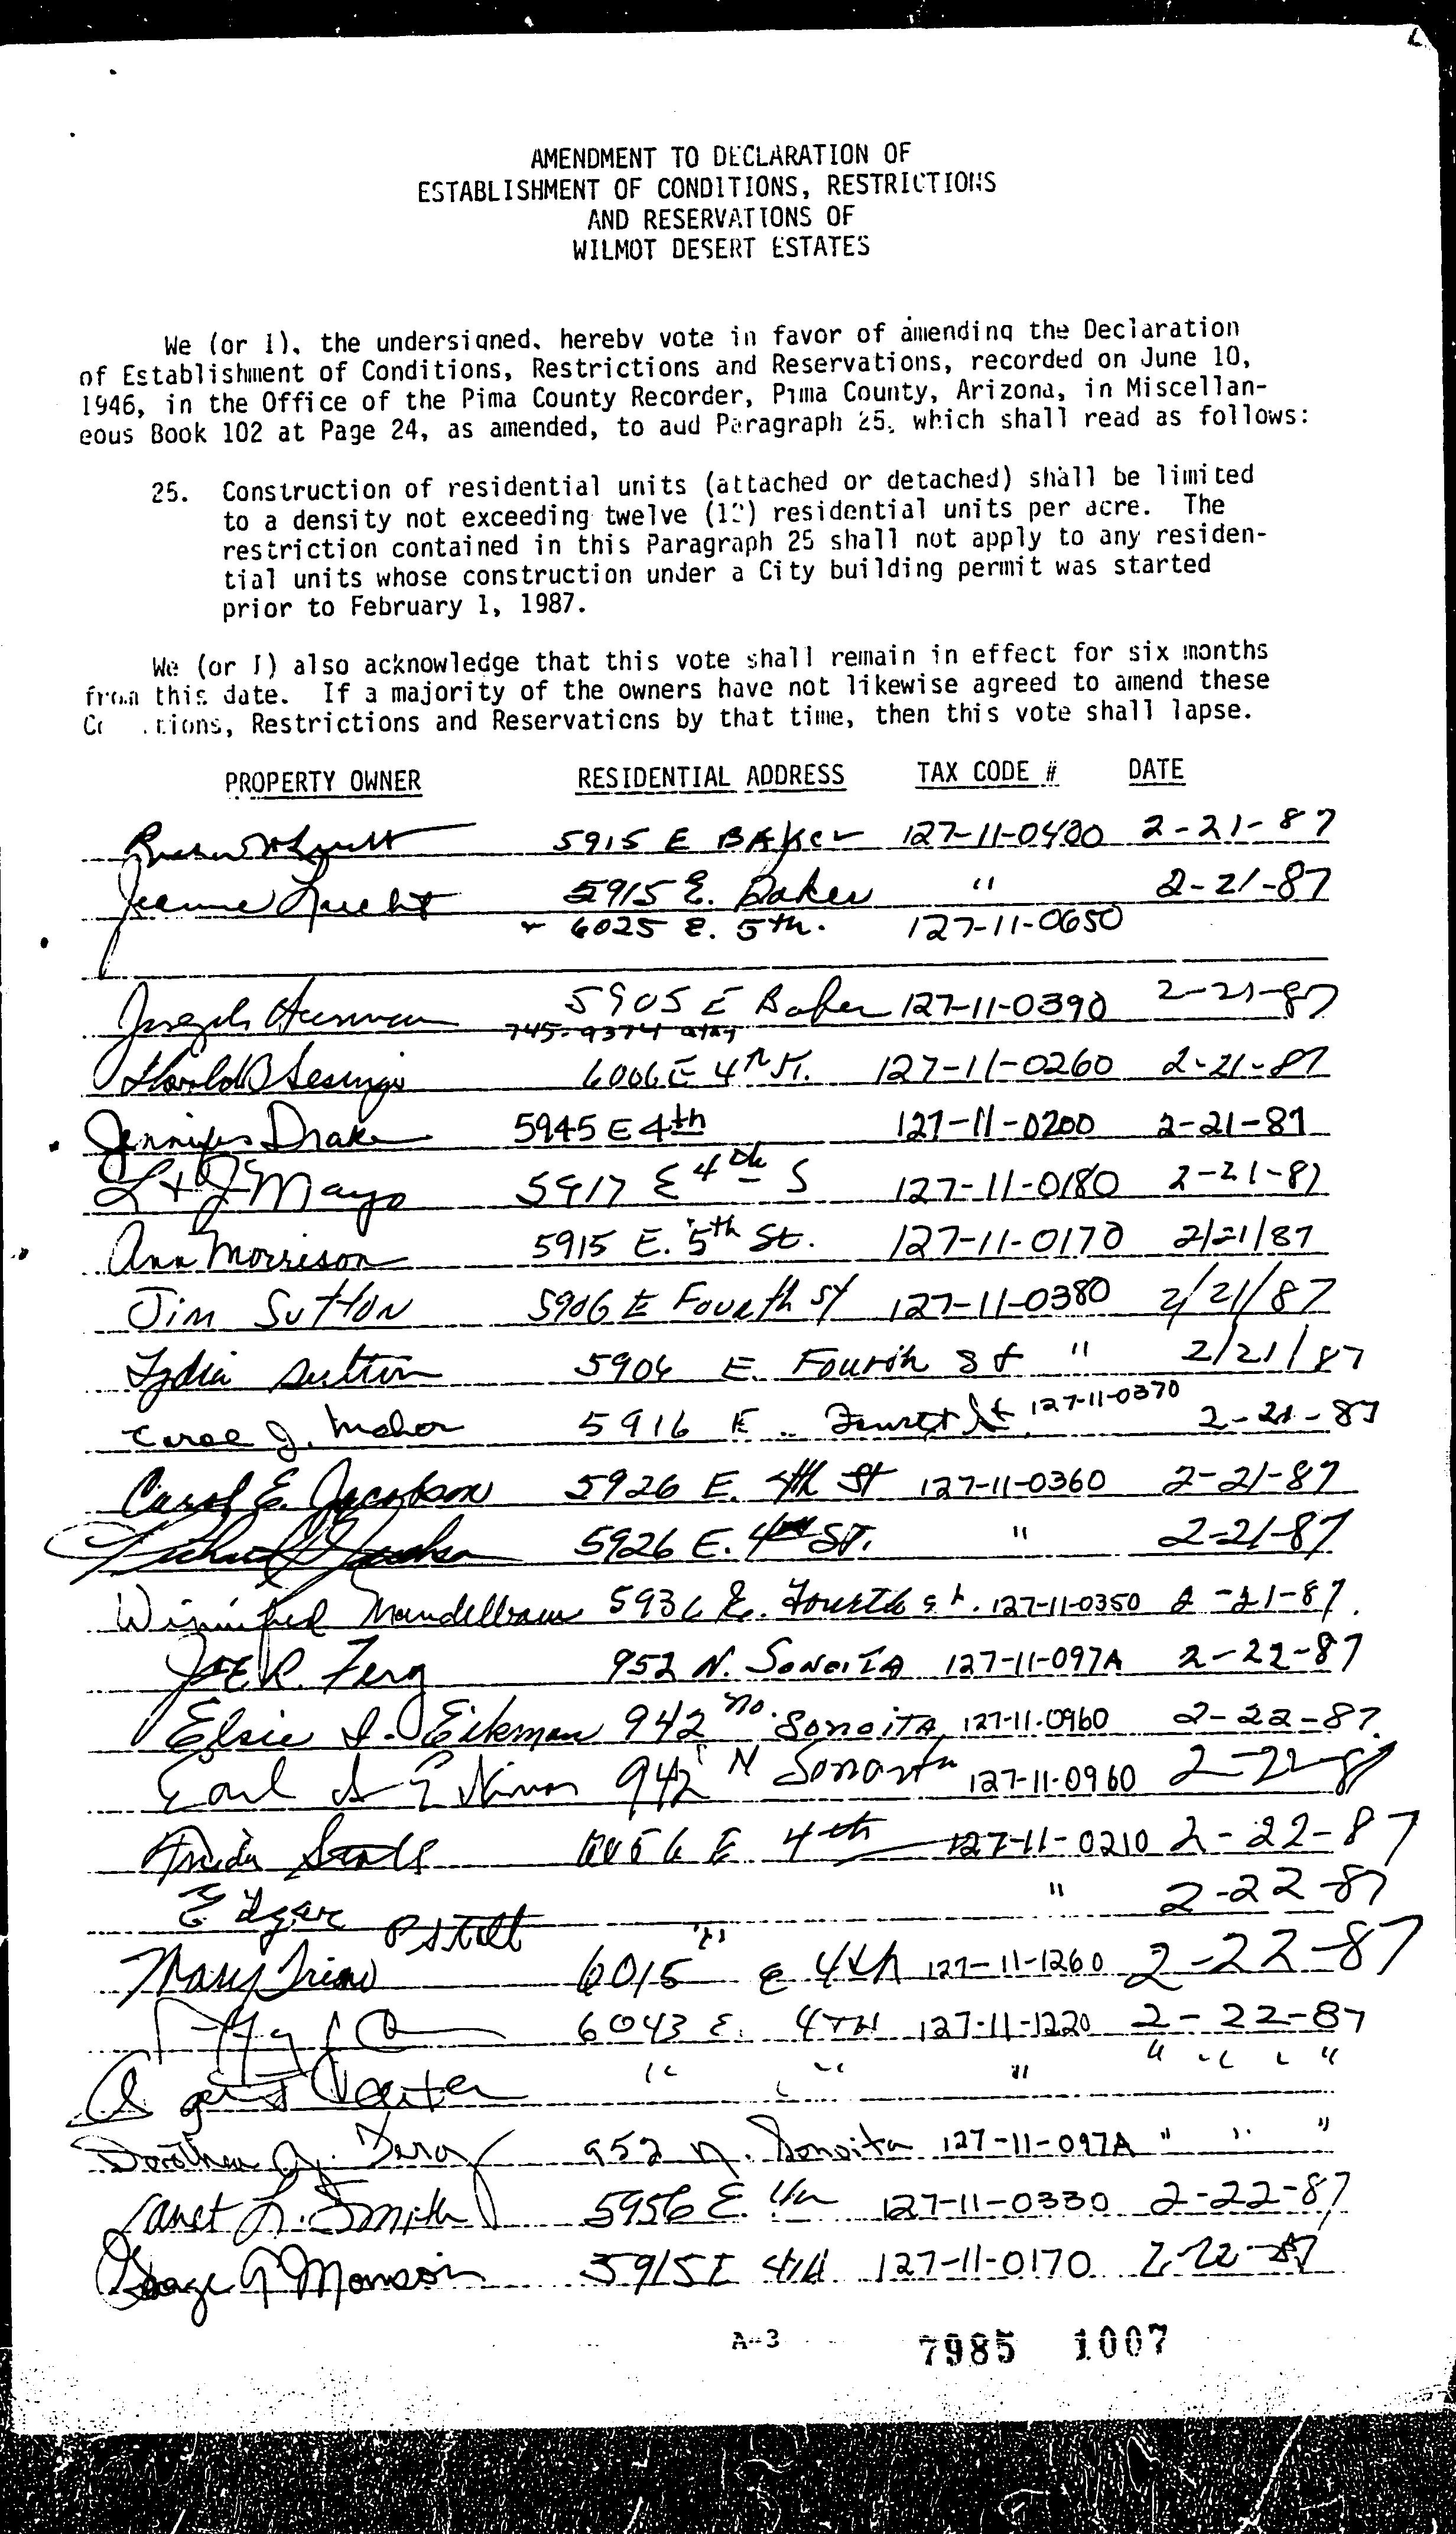 AMENDMENT TO DECLARATION OF
ESTABLISHMENT OF CONDITIONS, RESTRICTIONS
AND RESERVATIONS OF
WILMOT DESERT ESTATES
We (or I), the undersigned, hereby vote in favor of amending the Declaration
of Establishment of Conditions, Restrictions and Reservations, recorded on June 10,
1946, in the Office of the Pima County Recorder, Pima County, Arizona, in Miscellan-
eous Book 102 at Page 24, as amended, to add Paragraph 25, which shall read as follows:
25. Construction of residential units (attached or detached) shall be limited
to a density not exceeding twelve (12) residential units per acre. The
restriction contained in this Paragraph 25 shall not apply to any residen-
tial units whose construction under a City building permit was started
prior to February 1, 1987.
We (or I) also acknowledge that this vote shall remain in effect for six months
from this date. If a majority of the owners have not likewise agreed to amend these
Restrictions and Reservations by that time, then this vote shall lapse.
PROPERTY OWNER RESIDENTIAL ADDRESS TAX CODE # DATE
5915 E BAKer 127-11-0400 2-21-87
Jeanne 5915 E. Baker " 2-21-87
+ 6025 E. 5th. 127-11-0650
Joseph 5905 E Baker 127-11-0390 2-21-87
Harold 6006 E 4th St. 127-11-0260 2-21-87
Jennifer Drake 5945 E 4th 127-11-0200 2-21-87
L + J Mayo 5917 E 4th S 127-11-0180 2-21-87
Ann Morrison 5915 E. 5th St. 127-11-0170 2/21/87
Jim Sutton 5906 E Fourth St 127-11-0380 2/21/87
Lydia Sutton 5906 E. Fourth St " 2/21/87
Carol J. Maher 5916 E. Fourth St. 127-11-0370 2-21-87
Carol E. Jacobson 5926 E. 4th St 127-11-0360 2-21-87
Richard 5926 E. 4th ST. " 2-21-87
Winnifred Mandelbaum 5936 E. Fourth St. 127-11-0350 2-21-87.
Joe R. Ferg 952 N. SONOITA 127-11-097A 2-22-87
Elsie I. Eikman 942 no. Sonoita 127-11-0960 2-22-87.
Earl 942 N Sonoita 127-11-0960 2-22-87
E 4th 127-11-0210 2-22-87
Edgar " " 2-22-87
Mary 6015 E 4th 127-11-1260 2-22-87
6043 E. 4TH 127-11-1220 2-22-87
" " " " " "
Dorothea J. Ferg 952 N. Sonoita 127-11-097A " " "
Janet L. Smith 5956 E. 4th 127-11-0330 2-22-87
George G Morrison 5915 E 4th 127-11-0170 2-22-87
A-3 7985 1007